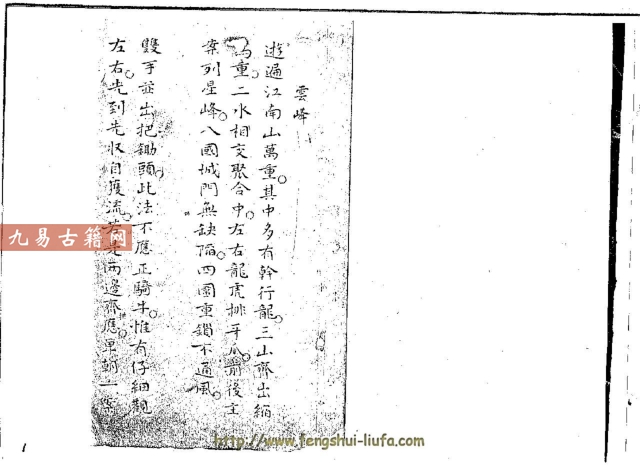 雲峰
遊遍江南山萬重其中多有幹行龍三山齊出締
為重二水相交聚合中左右龍虎排牙爪前後主
案列星峰八國城門無缺陷四圍重鎖不通風
雙手並出把鋤頭此法不應正騎牛惟有仔細觀
左右先到先收自護流 兩邊齊應單朝一案
九易古籍网
http://www.fengshui-liufa.com
1